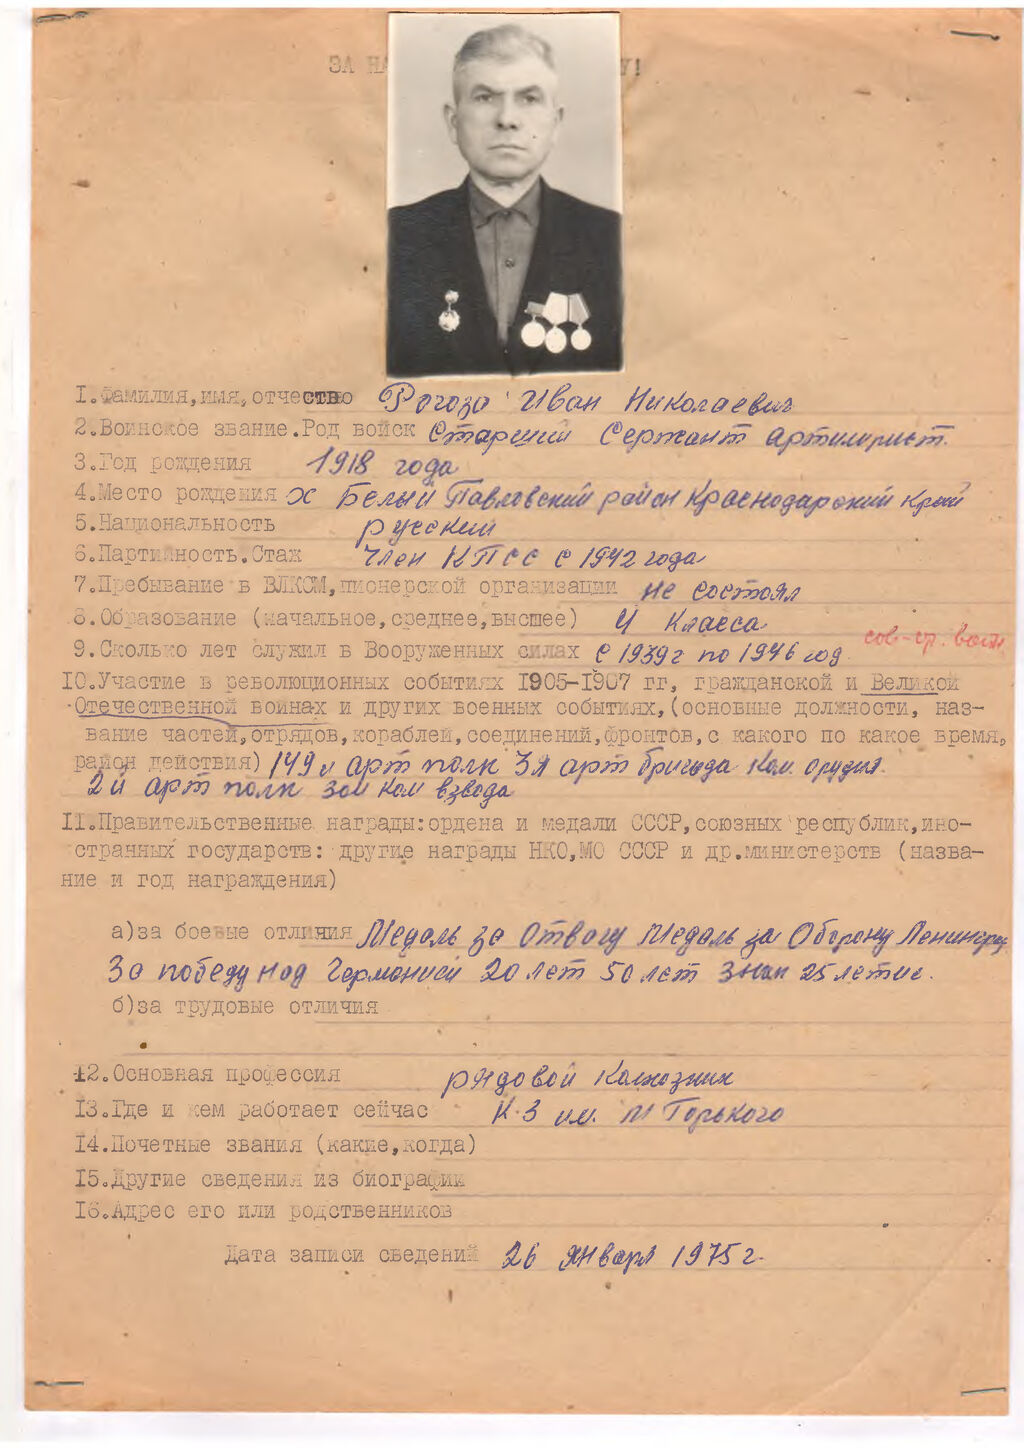 ЗА НА У!
1.Фамилия,имя,отчество Рогоза Иван Николаевич
2.Воинское звание.Род войск Старший Сержант артилирист.
3.Год рождения 1918 года
4.Место рождения х Белый Павловский район Краснодарский край
5.Национальность русский
6.Партийность.Стаж Член КПСС с 1942 года
7.Пребывание в ВЛКСМ,пионерской организации не состоял
8.Образование (начальное,среднее,высшее) 4 класса
9.Сколько лет служил в Вооруженных силах с 1939 г по 1946 год.
10.Участие в революционных событиях 1905-1907 гг, гражданской и Великой
Отечественной войнах и других военных событиях,(основные должности, наз-
вание частей,отрядов,кораблей,соединений,фронтов,с какого по какое время,
район действия) 149й арт полк 3я арт бригада Ком. орудия.
2й арт полк зам ком взвода
11.Правительственные награды:ордена и медали СССР,союзных республик,ино-
странных государств: другие награды НКО,МО СССР и др.министерств (назва-
ние и год награждения)
а)за боевые отличия Медаль за Отвагу Медаль за Оборону Ленинград
За победу над Германией 20 лет 50 лет Знак 25 летие.
б)за трудовые отличия
12.Основная профессия рядовой Колхозник
13.Где и кем работает сейчас К-З им. М Горького
14.Почетные звания (какие,когда)
15.Другие сведения из биографии
16.Адрес его или родственников
Дата записи сведений 26 января 1975 г.